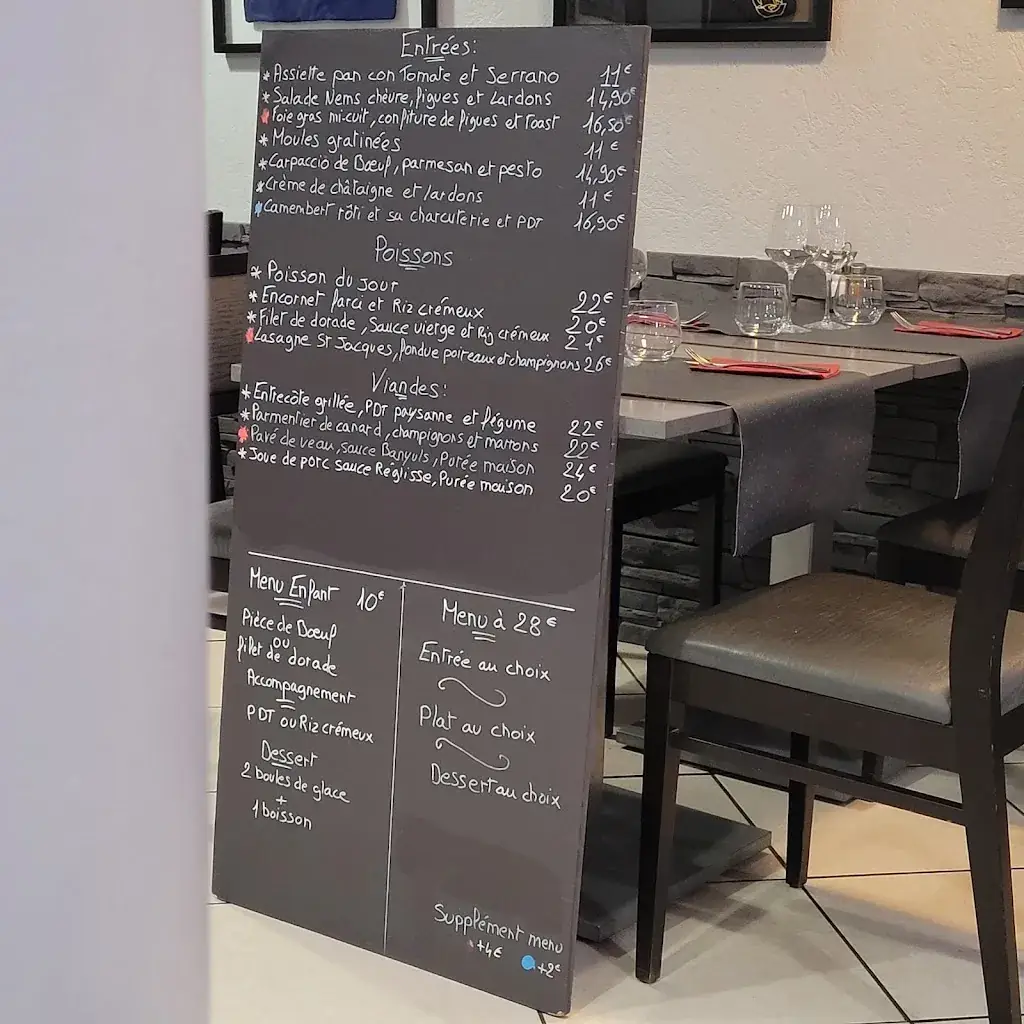 Entrées:
* Assiette pan con Tomate et Serrano 11€
* Salade Nems chèvre, figues et Lardons 14,90€
* Foie gras mi-cuit, confiture de figues et Toast 16,50€
* Moules gratinées 11€
* Carpaccio de Bœuf, parmesan et pesto 14,90€
* Crème de châtaigne et lardons 11€
* Camembert rôti et sa charcuterie et PDT 16,90€
Poissons
* Poisson du jour 22€
* Encornet farci et Riz crémeux 20€
* Filet de dorade, Sauce vierge et Riz crémeux 21€
* Lasagne St Jacques, fondue poireaux et champignons 26€
Viandes:
* Entrecôte grillée, PDT paysanne et légume 22€
* Parmentier de canard, champignons et marrons 22€
* Pavé de veau, sauce Banyuls, Purée maison 24€
* Joue de porc sauce Réglisse, Purée maison 20€
Menu Enfant 10€
Pièce de Bœuf
ou
filet de dorade
Accompagnement
PDT ou Riz crémeux
Dessert
2 boules de glace
+
1 boisson
Menu à 28€
Entrée au choix
Plat au choix
Dessert au choix
Supplément menu
* +4€ +2€